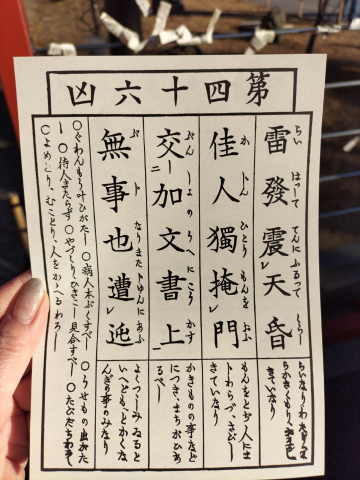 第四十六凶
雷發震天昏
らい はつして てんに ふるつて くらし
きていなり
佳人獨掩門
か じん ひとり もんを おふ
もんをとぢ人にま
じわらづ、さびし
きていなり
交加文書上
ぶん しよの うへに こう かす
かきものの事など
につき、まちがひあ
るべし
無事也遭迍
ぶ じ なりまた じゆんに あふ
よくつゝしみゐると
いへども、とかくな
んぎの事のみなり
○ぐわんもう叶ひがたし ○病人本ぷくすべし ○うせもの出がた
し ○待人きたらず ○やづくり、ひきこし見合すべし ○たびだちわろし
○よめとり、むことり、人をかゝへるわろし